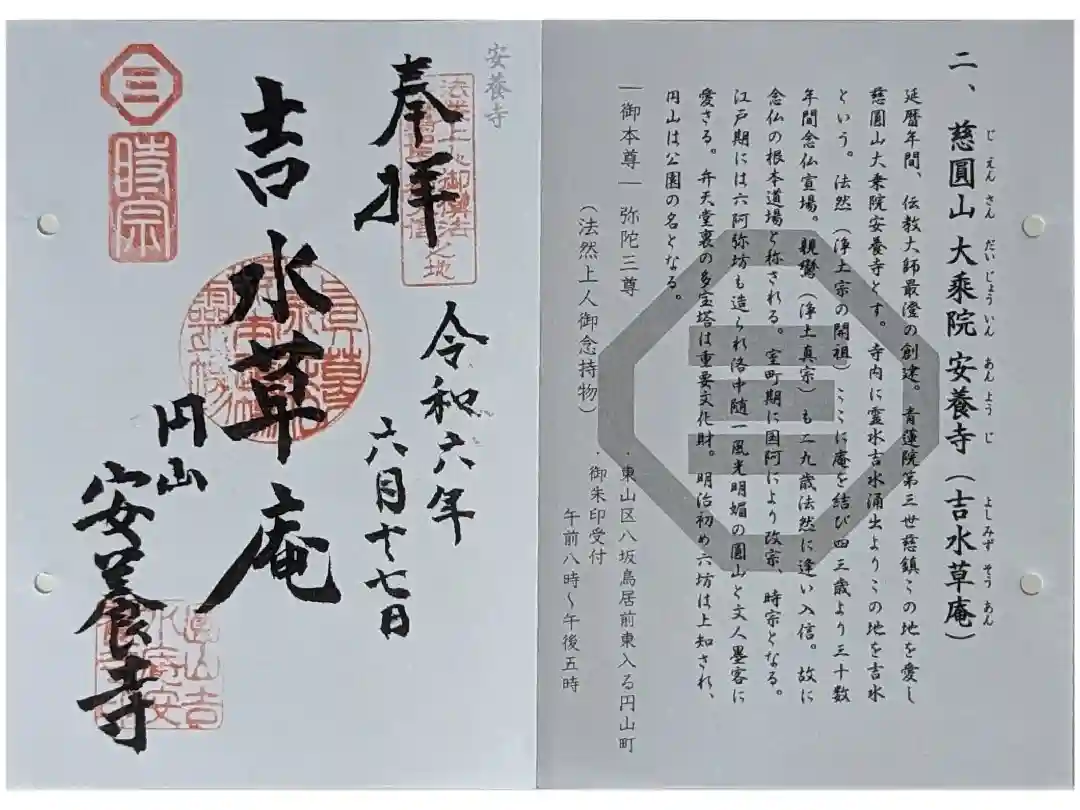 二、慈圓山 大乘院 安養寺（吉水草庵）
じ えん さん だい じょう いん あん よう じ よしみず そう あん
延暦年間、伝教大師最澄の創建。青蓮院第三世慈鎮この地を愛し
慈圓山大乗院安養寺とす。寺内に霊水吉水涌出よりこの地を吉水
という。法然（浄土宗の開祖）ここに庵を結び四三歳より三十数
年間念仏宣場。親鸞（浄土真宗）も二九歳法然に逢い入信。故に
念仏の根本道場と称される。室町期に国阿により改宗、時宗となる。
江戸期には六阿弥坊も造られ洛中随一風光明媚の圓山と文人墨客に
愛さる。弁天堂裏の多宝塔は重要文化財。明治初め六坊は上知され、
円山は公園の名となる。
―御本尊― 弥陀三尊
（法然上人御念持物）
・東山区八坂鳥居前東入る円山町
・御朱印受付
午前八時～午後五時
安養寺
奉拝
令和六年
六月十七日
吉水草庵
円山
安養寺
三
時宗